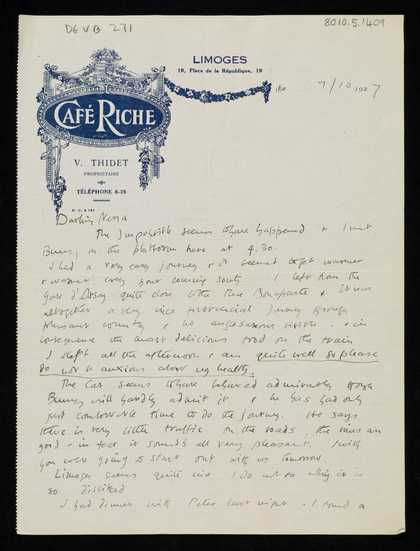 DG VB 271
8010.5.1409
LIMOGES
19, Place de la République, 19
CAFÉ RICHE
V. THIDET
PROPRIÉTAIRE
TÉLÉPHONE 6-26
le 7/10 1927
Darling Nessa
The Impossible seems to have happened & I met
Bunny on the platform here at 4.30.
I had a very easy journey & it seemed to get warmer
& warmer every hour coming south I left from the
Gare d'Orsay quite close to the Rue Bonaparte & it was
altogether a very nice provincial journey through
pleasant country & no anglosaxons visible. & in
consequence the most delicious food on the train
I slept all the afternoon & am quite well so please
do not be anxious about my health.
The Car seems to have behaved admirably though
Bunny will hardly admit it & he has had only
just comfortable time to do the journey. He says
there is very little traffic on the roads, the inns are
good & in fact it sounds all very pleasant. I wish
you were going to start out with us tomorrow.
Limoges seems quite nice I do not see why it is
so disliked
I had dinner with Peter last night. I found a